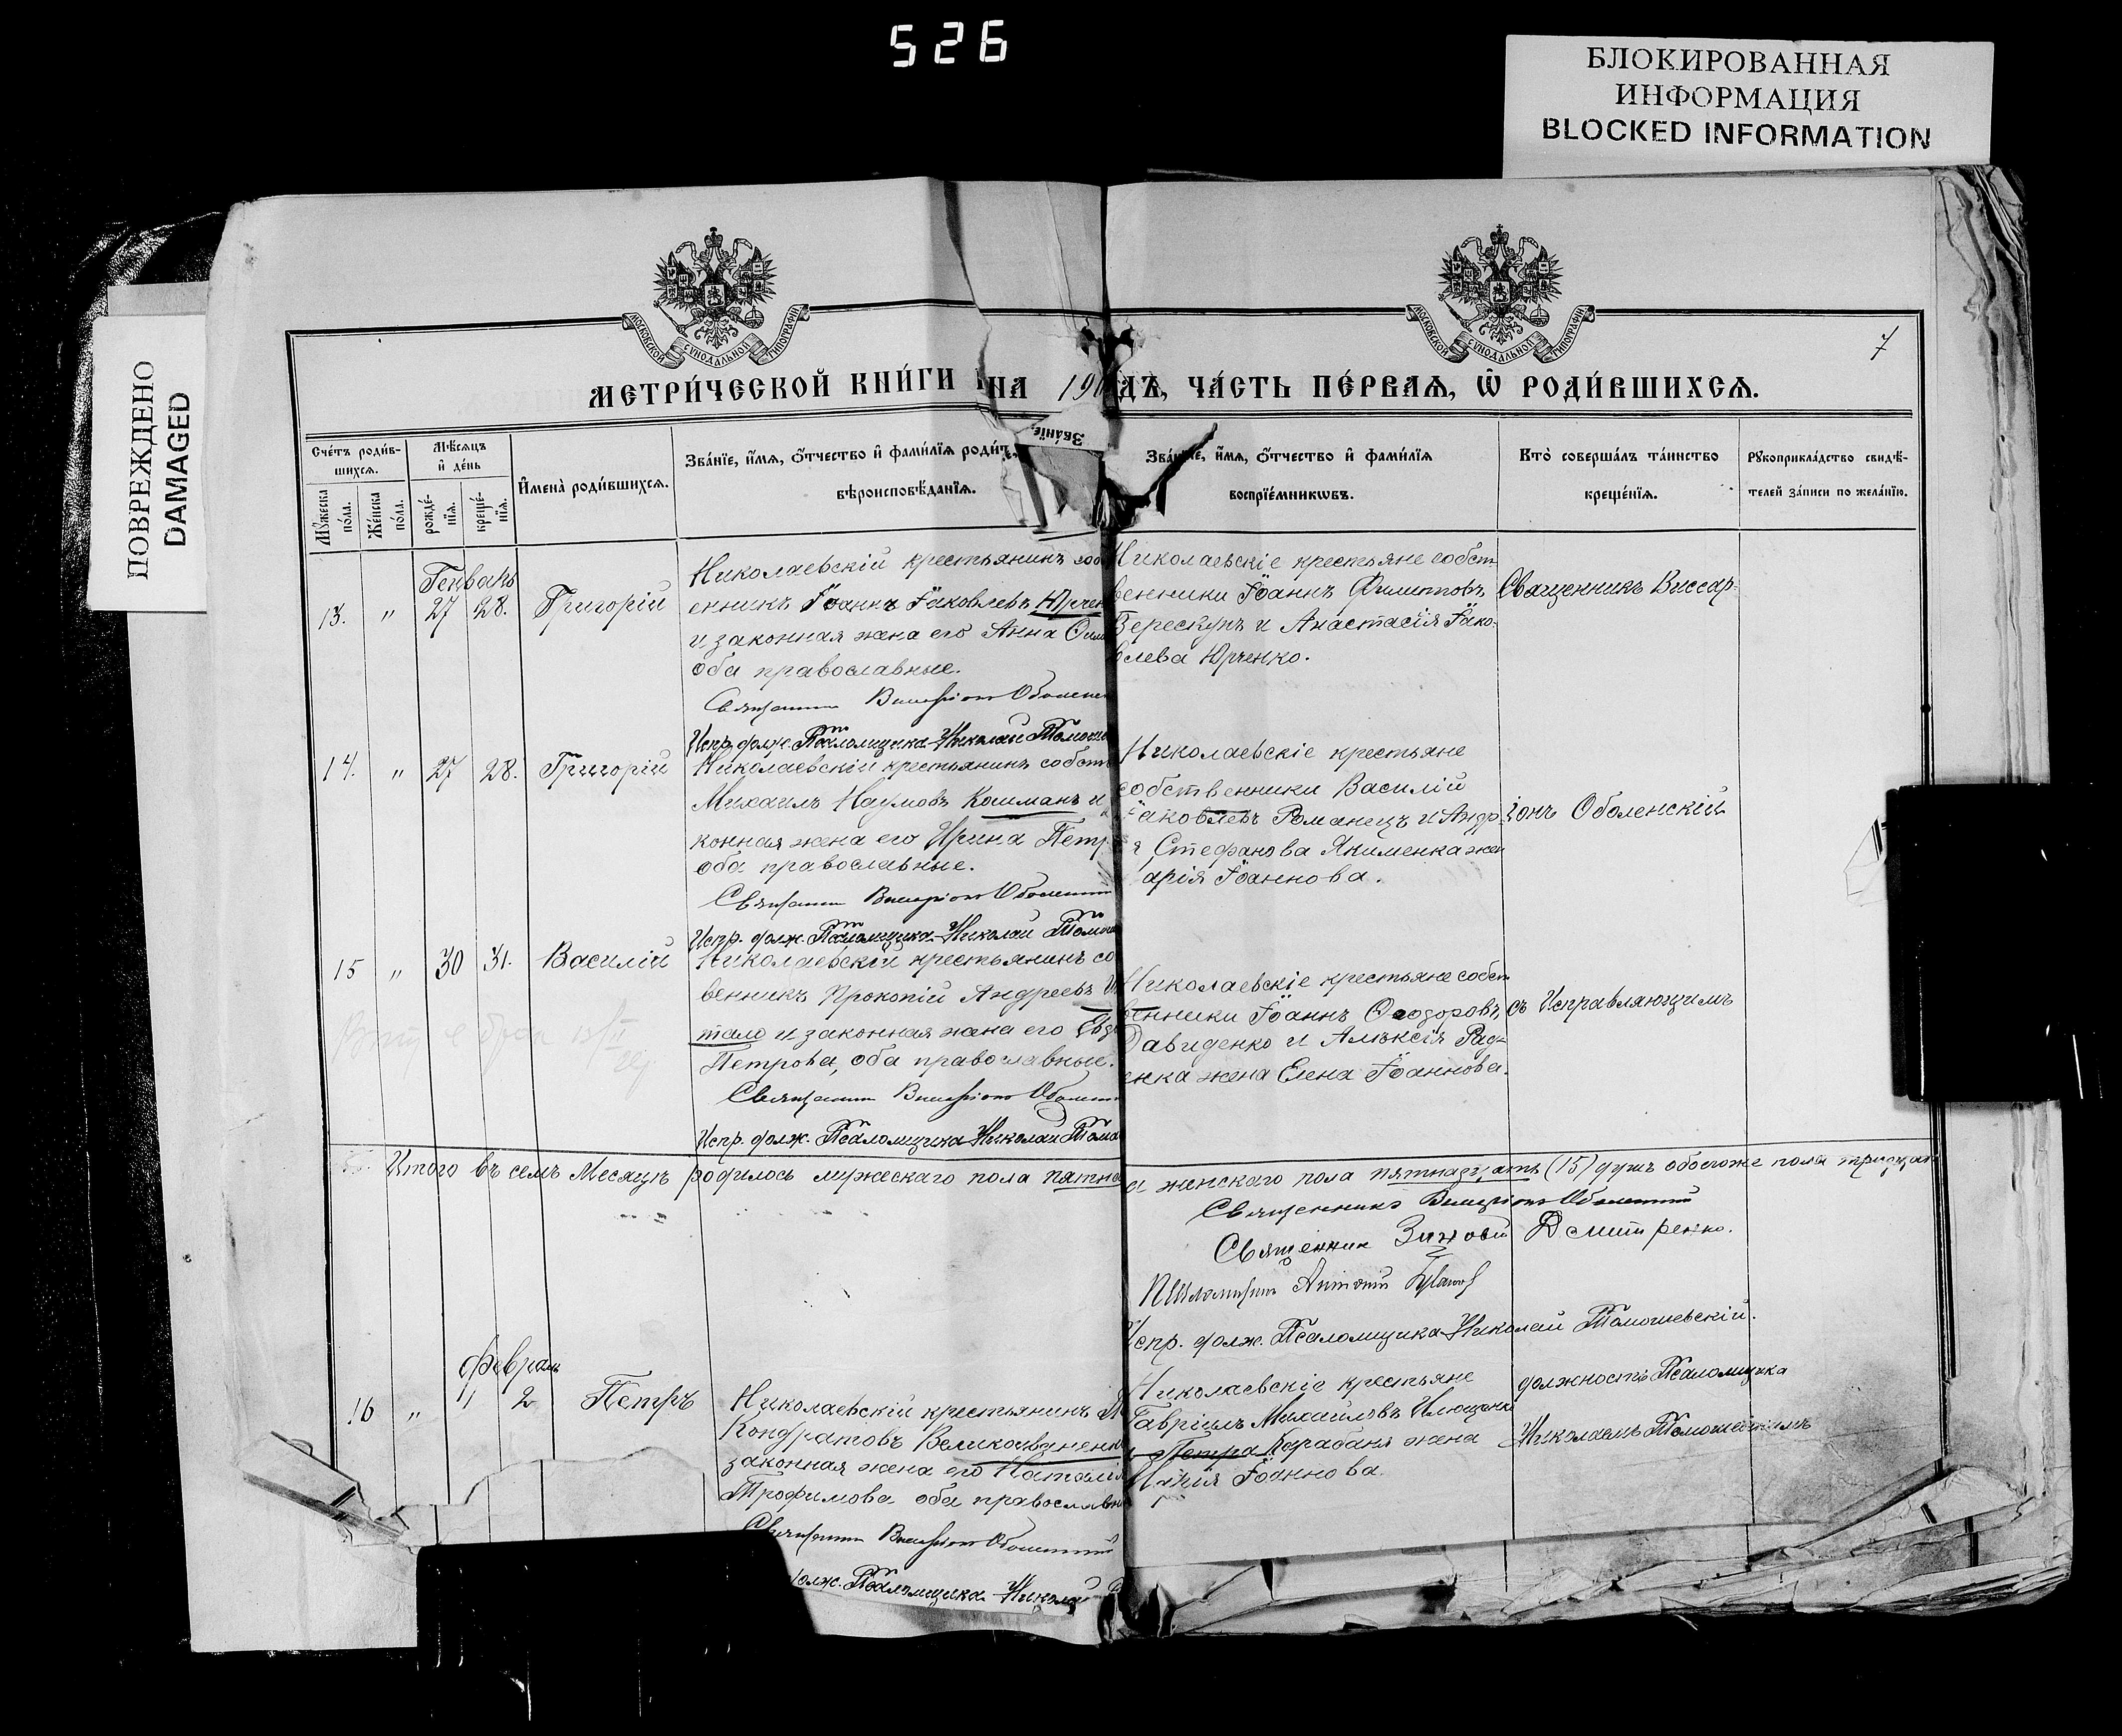 526
БЛОКИРОВАННАЯ
ИНФОРМАЦИЯ
BLOCKED INFORMATION
ПОВРЕЖДЕНО
DAMAGED
МОСКОВСКОЙ СѴНОДАЛЬНОЙ ТИПОГРАФІИ
МОСКОВСКОЙ СѴНОДАЛЬНОЙ ТИПОГРАФІИ
7
МЕТРИ́ЧЕСКОЙ КНИ́ГИ НА 19
ДЪ, ЧА́СТЬ ПЕ́РВАѦ, Ѡ҆ РОДИ́ВШИХСѦ.
Сче́тъ роди́в-
шихсѧ.
Мꙋ́жеска
по́ла.
Же́нска
по́ла.
Мѣ́сѧцъ
и҆ де́нь
рожде́-
нїѧ.
креще́-
нїѧ.
И҆мена̀ роди́вшихсѧ.
Зва́нїе, и҆́мѧ, ѻ҆́тчество и҆ фами́лїѧ роди́т
вѣроисповѣ́данїѧ.
Зва́нїе,
Зва́нїе, и҆́мѧ, ѻ҆́тчество и҆ фами́лїѧ
воспрїе́мникѡвъ.
Кто̀ соверша́лъ та́инство
креще́нїѧ.
Рꙋкоприкла́дство свидѣ́-
телей за́писи по жела́нїю.
Генварь
13. " 27 28. Григорій
Николаевскій крестьянинъ соб
енникъ Іоаннъ Іаковлевъ Юрчен
и законная жена его Анна
оба православные.
Священникъ Виссаріонъ Оболенс
Испр. долж. Псаломщика Николай
Николаевскіе крестьяне собст
венники Іоаннъ Филипповъ
Берескунъ и Анастасія Іако-
влева Юрченко.
Священникъ Виссар-
14. " 27 28. Григорій
Николаевскій крестьянинъ собств
Михаилъ Наумовъ Кошманъ и
конная жена его Ирина Петр
оба православные.
Священникъ Виссаріонъ Оболенскій
Испр. долж. Псаломщика Николай
Николаевскіе крестьяне
собственники Василій
Іаковлевъ Романецъ и Андр
Стефанова Якименка жен
арія Іоаннова.
іонъ Оболенскій
15 " 30 31. Василій
Николаевскій крестьянинъ со
венникъ Прокопій Андреевъ
тало и законная жена его Евд
Петрова, оба православные.
Священникъ Виссаріонъ Оболенск
Испр. долж. Псаломщика Николай
Николаевскіе крестьяне собст
венники Іоаннъ Ѳеодоровъ
Давиденко и Алѣксія Рад
енка жена Елена Іоаннова.
съ Исправляющимъ
Итого въ семъ Месяцѣ родилось мужескаго пола пятна
а женскаго пола пятнадцать (15) душъ обоегоже пола тридцат
Священникъ Виссаріонъ Оболенскій
Священник Зиновій Дмитренко.
Псаломщикъ Антоній
Испр. долж. Псаломщика Николай Томашевскій.
Февраль
16 " 1 2 Петръ
Николаевскій крестьянинъ
Кондратовъ Великоиваненко
законная жена его Наталія
Трофимова оба православн
Священникъ Виссаріонъ Оболенскій
долж. Псаломщика Никола
Николаевскіе крестьяне
Гавріилъ Михайловъ Илющенко
и Петра Карабаня жена
Марія Іоаннова.
должность Псаломщика
Николаемъ Томашевскимъ